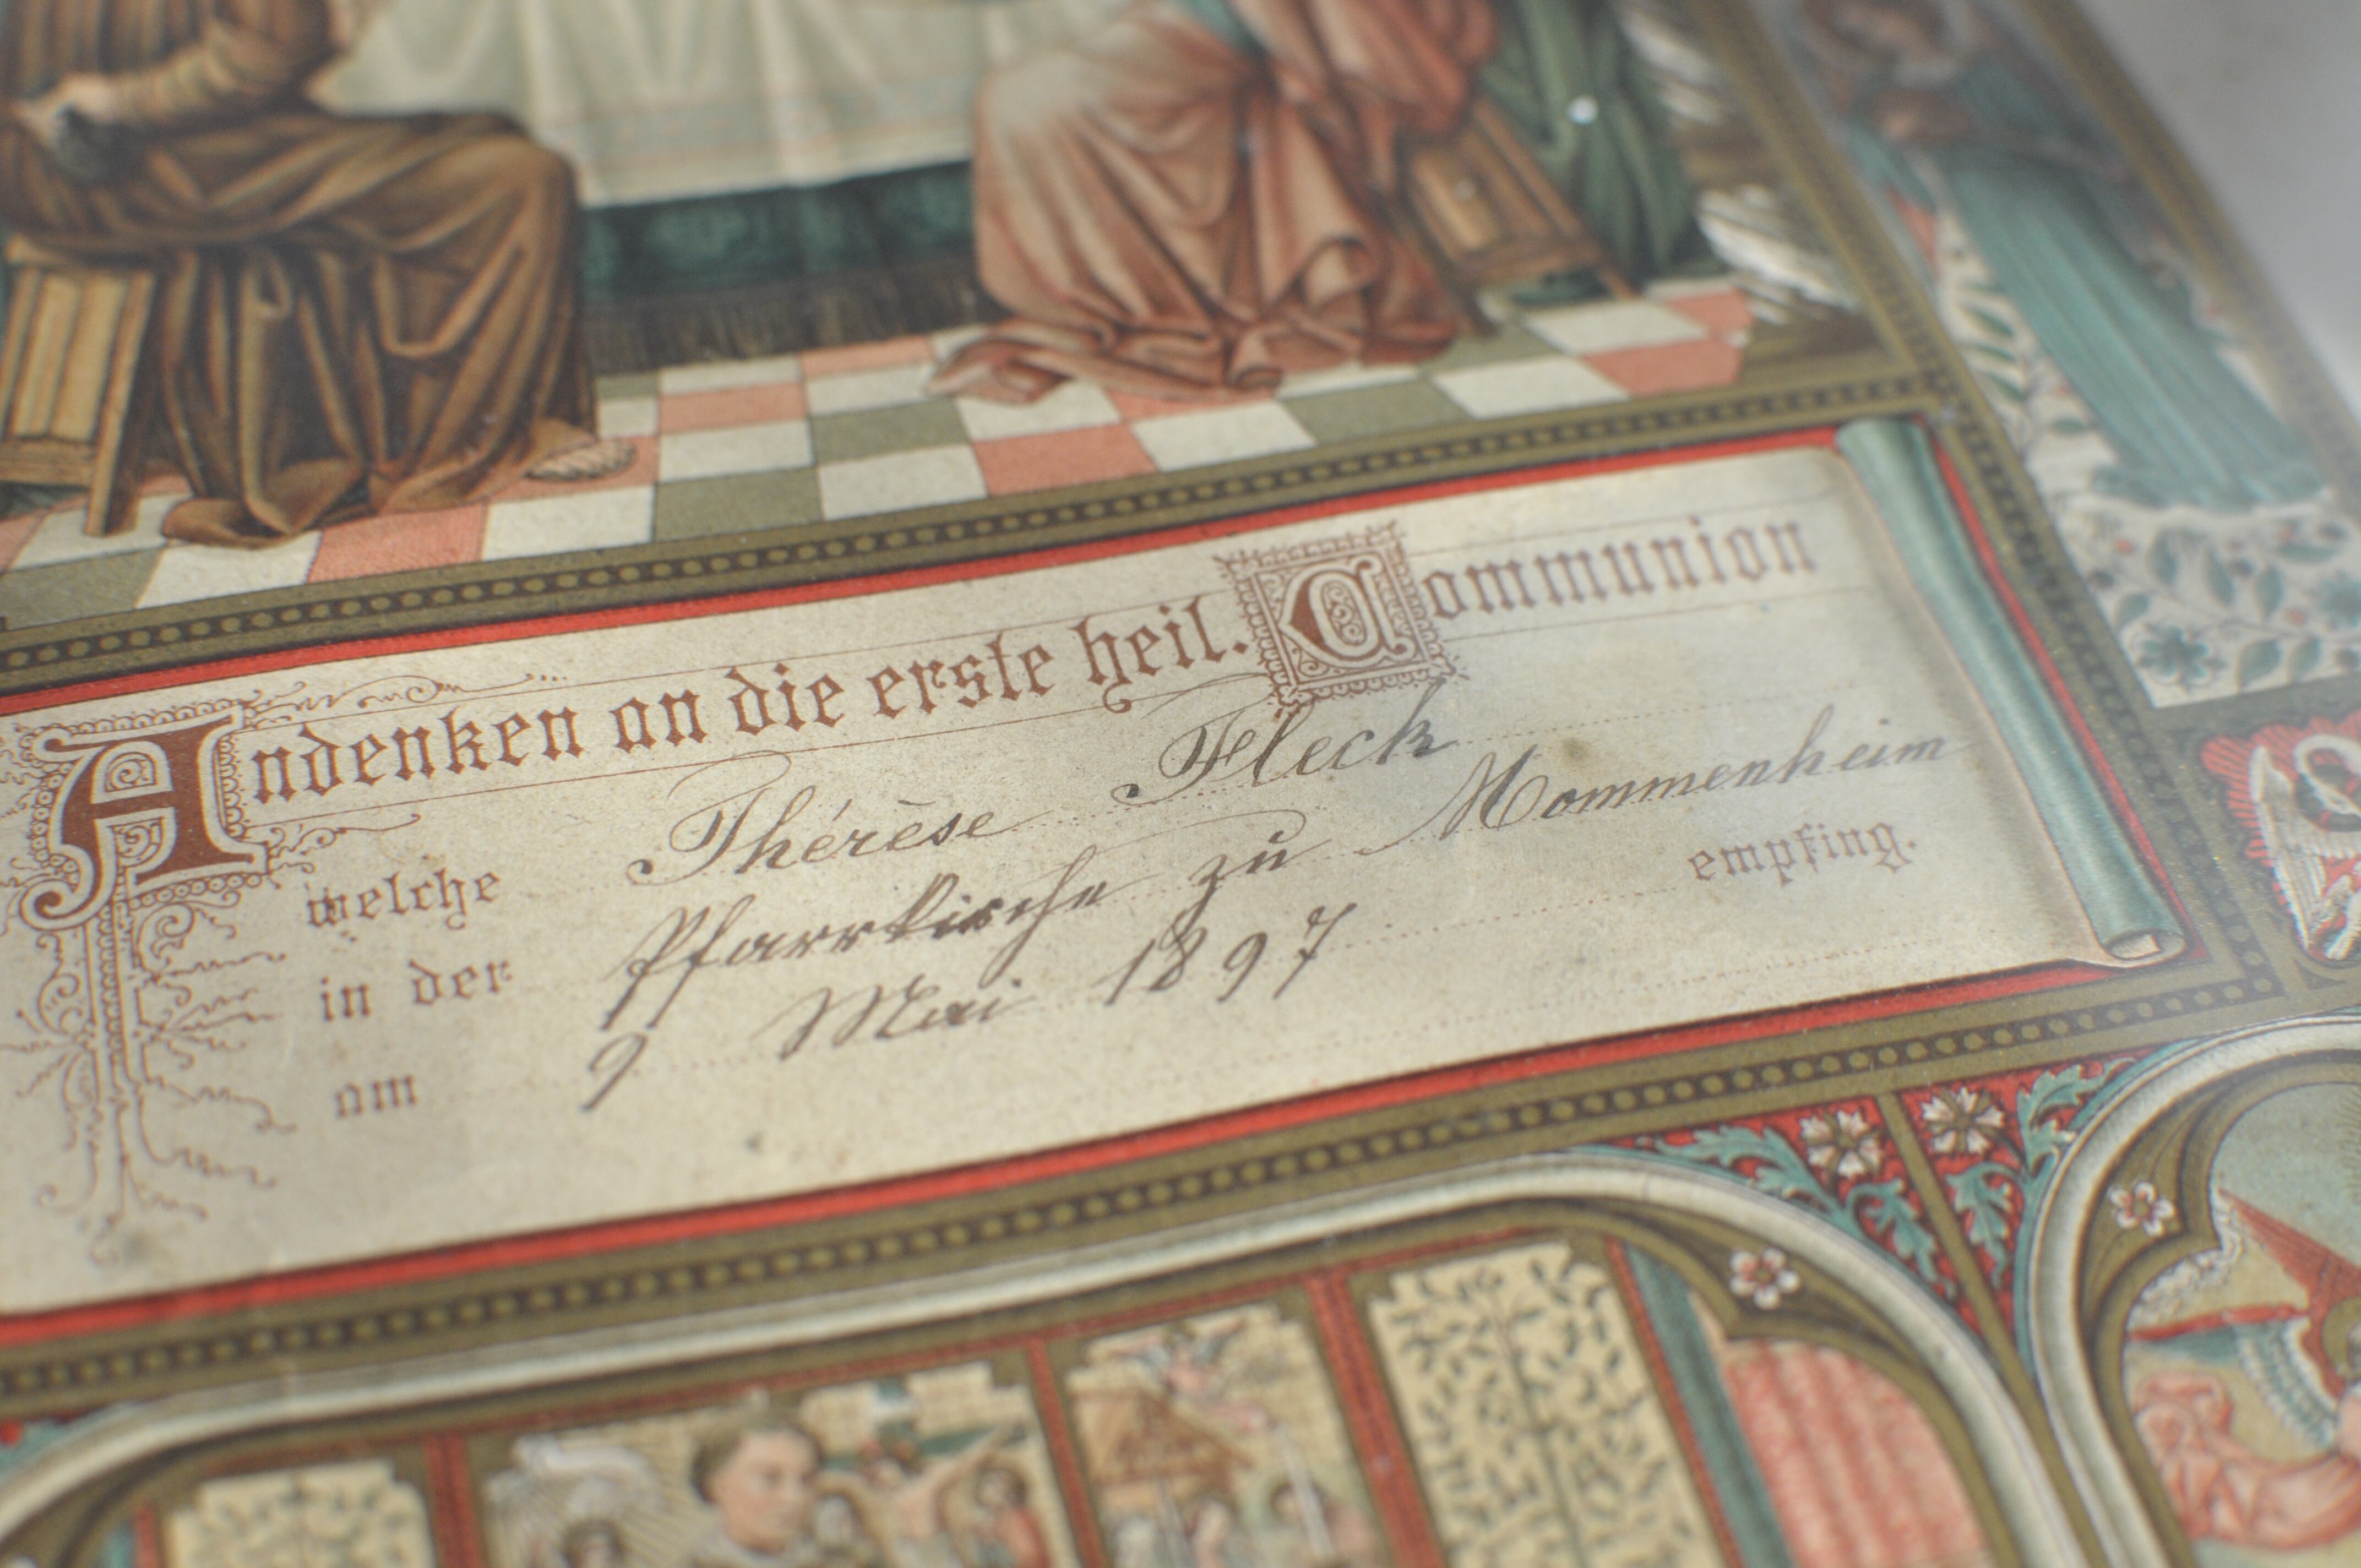 Andenken an die erste heil. Communion
welche Thérèse Fleck
in der Pfarrkirche zu Mommenheim
am 9 Mai 1897 empfing.